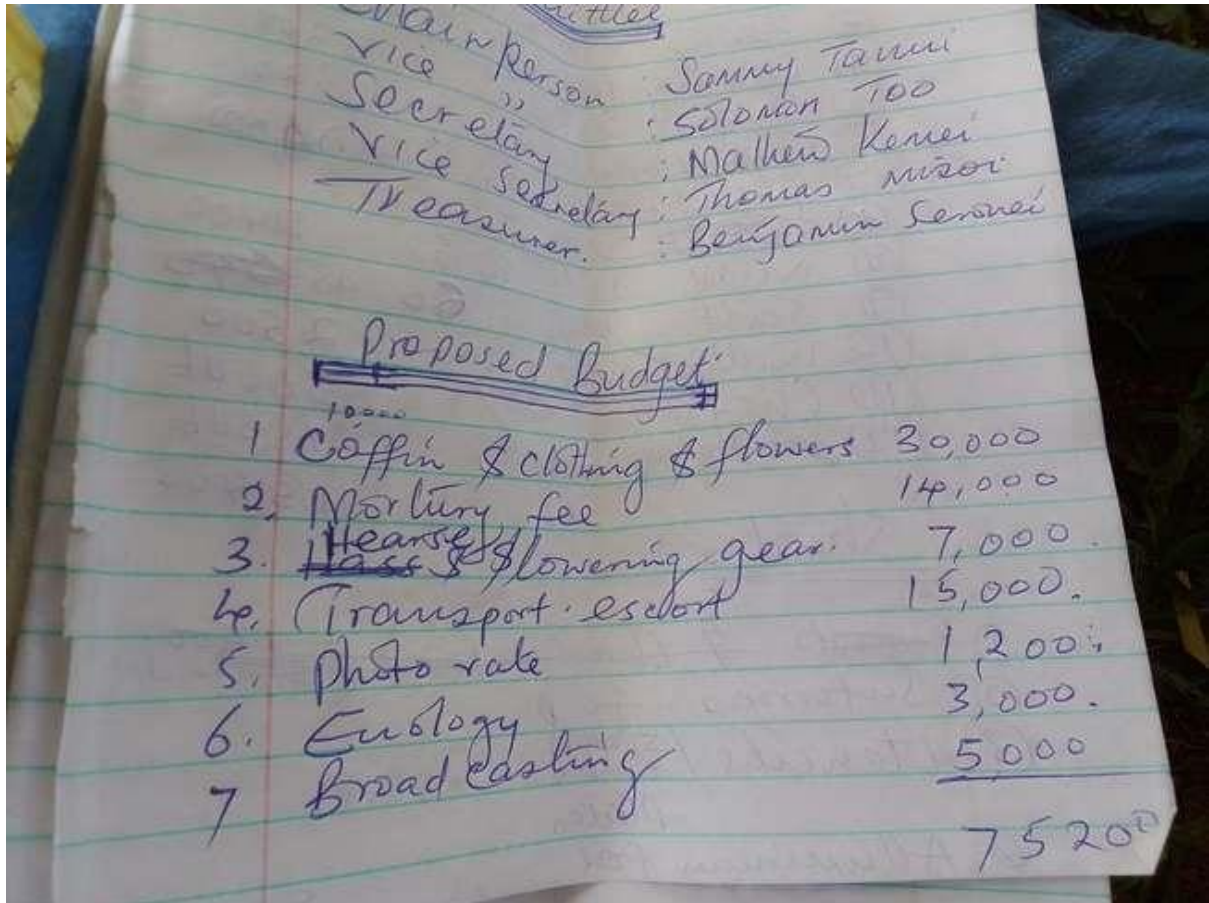 Chairperson : Sammy Tamui
Vice ,, : Solomon Too
Secretary ; Mathew Kemei
Vice Secretary : Thomas
Treasurer. : Benjamin Seronei
Proposed Budget
10000
1 Coffin & clothing & flowers 30,000
2, Mortury fee 14,000
3. Hearse & lowering gear. 7,000.
4, Transport. escort 15,000.
5, Photo rate 1,200
6. Euology 3,000.
7 Broadcasting 5,000
75200